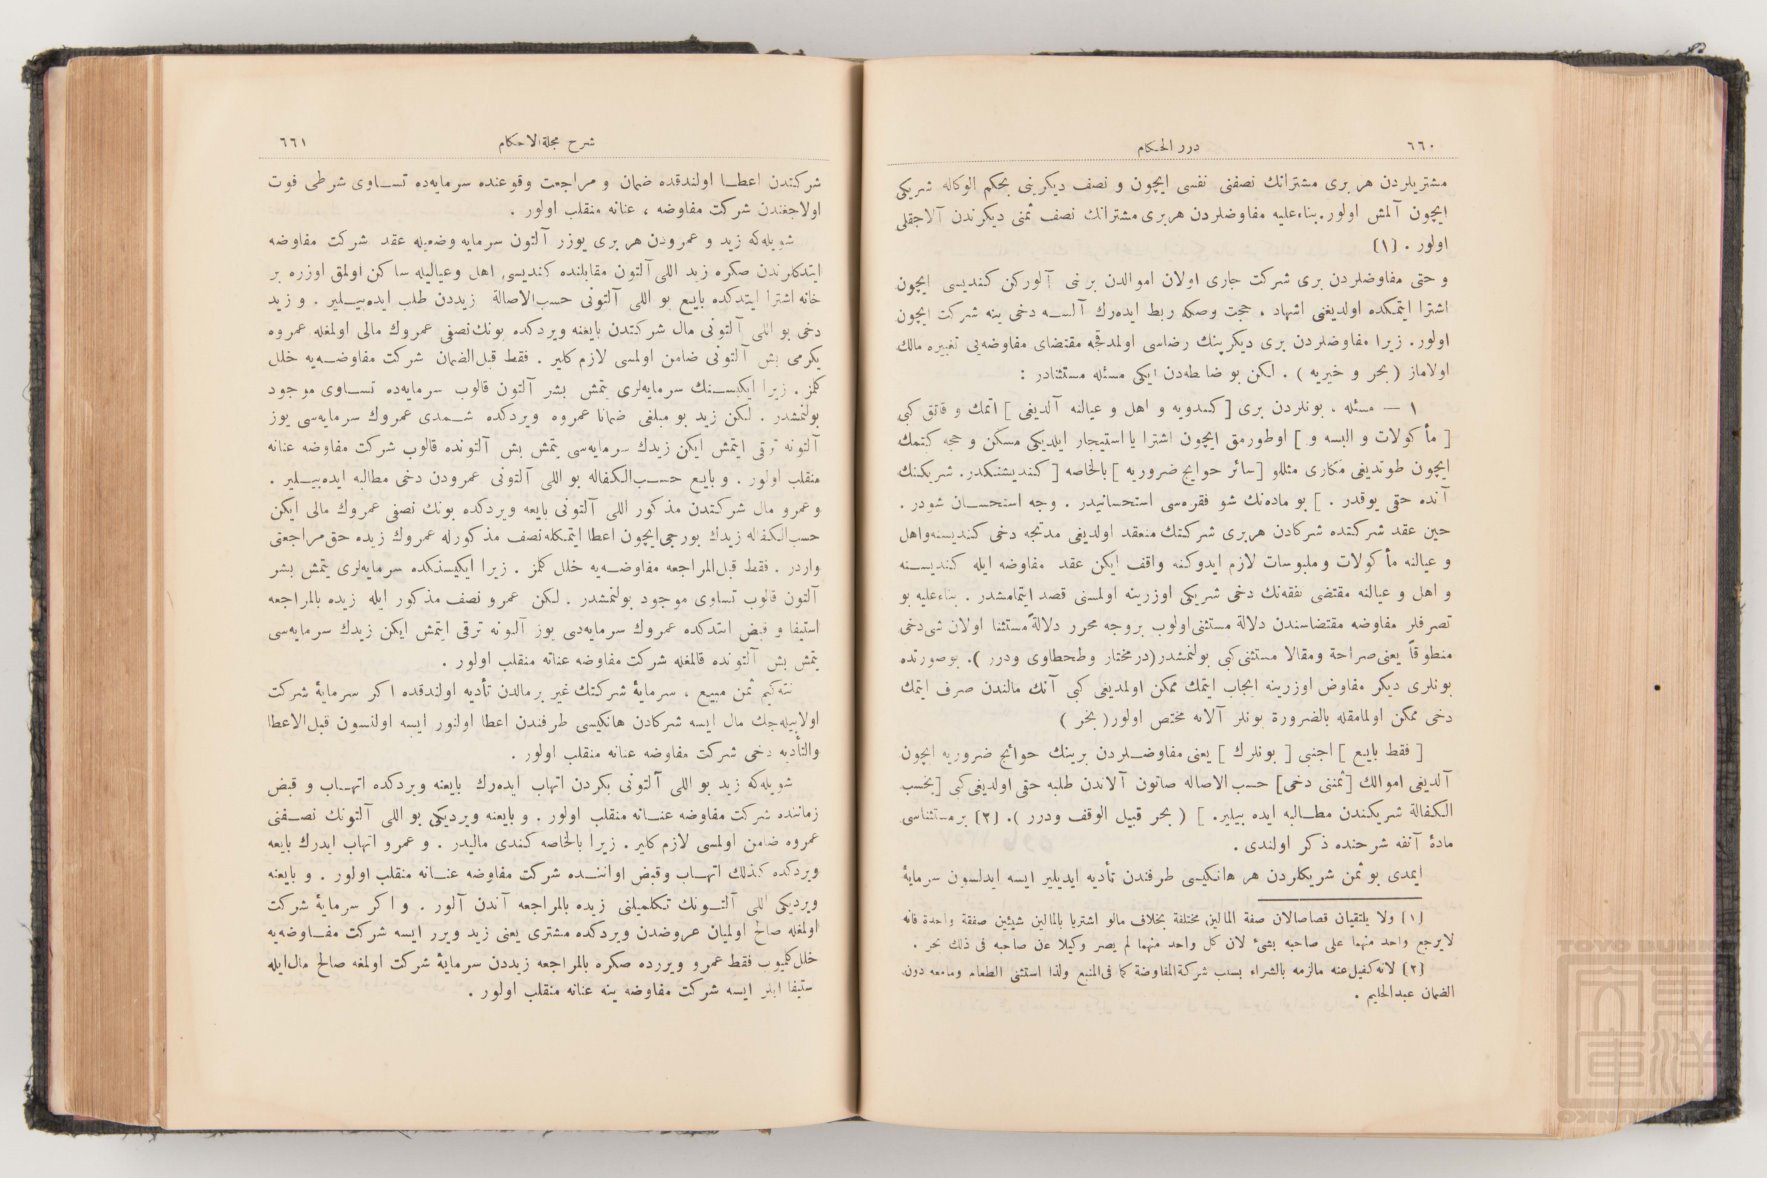 ٦٦٠
درر الحكام
مشتريلردن هر برى مشترانك نصفنى نفسى ايچون و نصف ديكرينى بحكم الوكاله شريكى
ايچون آلمش اولور. بناءعليه مفاوضلردن هربرى مشترانك نصف ثمنى ديكرندن آلاجقلى
اولور . (١)
و حتى مفاوضلردن برى شركت جارى اولان اموالدن برنى آلوركن كنديسى ايچون
اشترا ايتمكده اولديغنى اشهاد ، حجت وصكه ربط ايدەرك آلسـه دخى ينه شركت ايچون
اولور. زيرا مفاوضلردن برى ديكرينك رضاسى اولمدقجه مقتضاى مفاوضەيى تغييره مالك
اولاماز (بحر و خيريه ) . لكن بو ضابطەدن ايكى مسئله مستثنادر :
١ — مسئله ، بونلردن برى [ كندويه و اهل و عيالنه آلديغى ] اتمك و قاتق كبى
[ مأكولات و البسه و ] اوطورمق ايچون اشترا يا استيجار ايلديكى مسكن و حجه كتمك
ايچون طوتديغى مكارى مثللو [سائر حوايج ضروريه ] بالخاصه [ كنديسنكدر. شريكنك
آنده حقى يوقدر . ] بو مادەنك شو فقرەسى استحسانيدر . وجه استحسـان شودر .
حين عقد شركتده شركادن هربرى شركتك منعقد اولديغى مدتجه دخى كنديسنه‌واهل
و عيالنه مأكولات وملبوسات لازم ايدوكنه واقف ايكن عقد مفاوضه ايله كنديسـنه
و اهل و عيالنه مقتضى نفقەنك دخى شريكى اوزرينه اولمسنى قصد ايتمامشدر . بناءعليه بو
تصرفلر مفاوضه مقتضاسندن دلالة مستثنى‌اولوب بروجه محرر دلالةً مستثنا اولان شى‌دخى
منطوقاً يعنى‌صراحة ومقالا مستثنى‌كبى بولنمشدر(درمختار وطحطاوى ودرر ). بوصورتده
بونلرى ديكر مفاوض اوزرينه ايجاب ايتمك ممكن اولمديغى كبى آنك مالندن صرف ايتمك
دخى ممكن اولمامقله بالضرورة بونلر آلانه مختص اولور( بحر )
[ فقط بايع ] اجنبى [ بونلرك ] يعنى مفاوضـلردن برينك حوائج ضروريه ايچون
آلديغى اموالك [ثمننى دخى] حسب الاصاله صاتون آلاندن طلبه حقى اولديغى كبى [بحسب
الكفالة شريكندن مطـالبه ايده بيلير. ] ( بحر قبيل الوقف ودرر ). (٢) برمستثناسى
مادۀ آنفه شرحنده ذكر اولندى .
ايمدى بو ثمن شريكلردن هر هانكيسى طرفندن تأديه ايديلير ايسه ايدلسون سرمايۀ
(١) ولا يلتقيان قصاصالان صفة المالين مختلفة بخلاف مالو اشتريا بالمالين شيئين صفقة واحدة فانه
لايرجع واحد منهما على صاحبه بشئ لان كل واحد منهما لم يصر وكيلا عن صاحبه فى ذلك بحر .
(٢) لانه‌كفيل‌عنه مالزمه بالشراء بسبب شركةالمفاوضة كما فى‌المنبع ولذا استثنى الطعام ومامعه دون
الضمان عبدالحليم .
شرح مجلةالاحكام
٦٦١
شركتدن اعطـا اولندقده ضمان و مراجعت وقوعنده سرمايەده تسـاوى شرطى فوت
اولاجغندن شركت مفاوضه ، عنانه منقلب اولور .
شويله‌كه زيد و عمرودن هر برى يوزر آلتون سرمايه وضعيله عقد شركت مفاوضه
ايتدكلرندن صكره زيد اللى آلتون مقابلنده كنديسى اهل وعياليله ساكن اولمق اوزره بر
خانه اشترا ايتدكده بايع بو اللى آلتونى حسب‌الاصالة زيددن طلب ايدەبيـلير . و زيد
دخى بو اللى آلتونى مال شركتدن بايعنه ويردكده بونك‌نصفى عمروك مالى اولمغله عمروه
يكرمى بش آلتونى ضامن اولمسى لازم كلير . فقط قبل‌الضمان شركت مفاوضـەيه خلل
كلز . زيرا ايكيسـنك سرمايەلرى يتمش بشر آلتون قالوب سرمايەده تسـاوى موجود
بولنمشدر . لكن زيد بو مبلغى ضمانا عمروه ويردكده شـمدى عمروك سرمايەسى يوز
آلتونه ترقى ايتمش ايكن زيدك سرمايەسى يتمش بش آلتونده قالوب شركت مفاوضه عنانه
منقلب اولور . و بايع حسـب‌الكفاله بو اللى آلتونى عمرودن دخى مطالبه ايدەبيـلير .
وعمرو مال شركتدن مذكور اللى آلتونى بايعه ويردكده بونك نصفى عمروك مالى ايكن
حسب‌الكفاله زيدك بورجى‌ايچون اعطا ايتمكله‌نصف مذكورله عمروك زيده حق‌مراجعتى
واردر . فقط قبل‌المراجعه مفاوضـەيه خلل كلمز . زيرا ايكيسنكده سرمايەلرى يتمش بشر
آلتون قالوب تساوى موجود بولنمشدر . لكن عمرو نصف مذكور ايله زيده بالمراجعه
استيفا و قبض ايتدكده عمروك سرمايەسى يوز آلتونه ترقى ايتمش ايكن زيدك سرمايەسى
يتمش بش آلتونده قالمغله شركت مفاوضه عنانه منقلب اولور .
نته‌كيم ثمن مبيع ، سرمايۀ شركتك غير برمالدن تأديه اولندقده اكر سرمايۀ شركت
اولابيلەجك مال ايسه شركادن هانكيسى طرفندن اعطا اولنور ايسه اولنسون قبل‌الاعطا
والتأديه دخى شركت مفاوضه عنانه منقلب اولور .
شويله‌كه زيد بو اللى آلتونى بكردن اتهاب ايدەرك بايعنه ويردكده اتهـاب و قبض
زماننده شركت مفاوضه عنـانه منقلب اولور . و بايعنه ويرديكى بو اللى آلتونك نصـفنى
عمروه ضامن اولمسى لازم كلير . زيرا بالخاصه كندى ماليدر . و عمرو اتهاب ايدرك بايعه
ويردكده كذلك اتهـاب وقبض اولننـده شركت مفاوضه عنـانه منقلب اولور . و بايعنه
ويرديكى اللى آلتـونك تكلميلنى زيده بالمراجعه آندن آلور . و اكر سرمايۀ شركت
اولمغله صالح اولميان عروضدن ويردكده مشترى يعنى زيد ويرر ايسه شركت مفـاوضەيه
خلل‌كلميوب فقط عمرو ويررده صكره بالمراجعه زيددن سرمايۀ شركت اولمغه صالح مال‌ايله
ستيفا ايلر ايسه شركت مفاوضه ينه عنانه منقلب اولور .